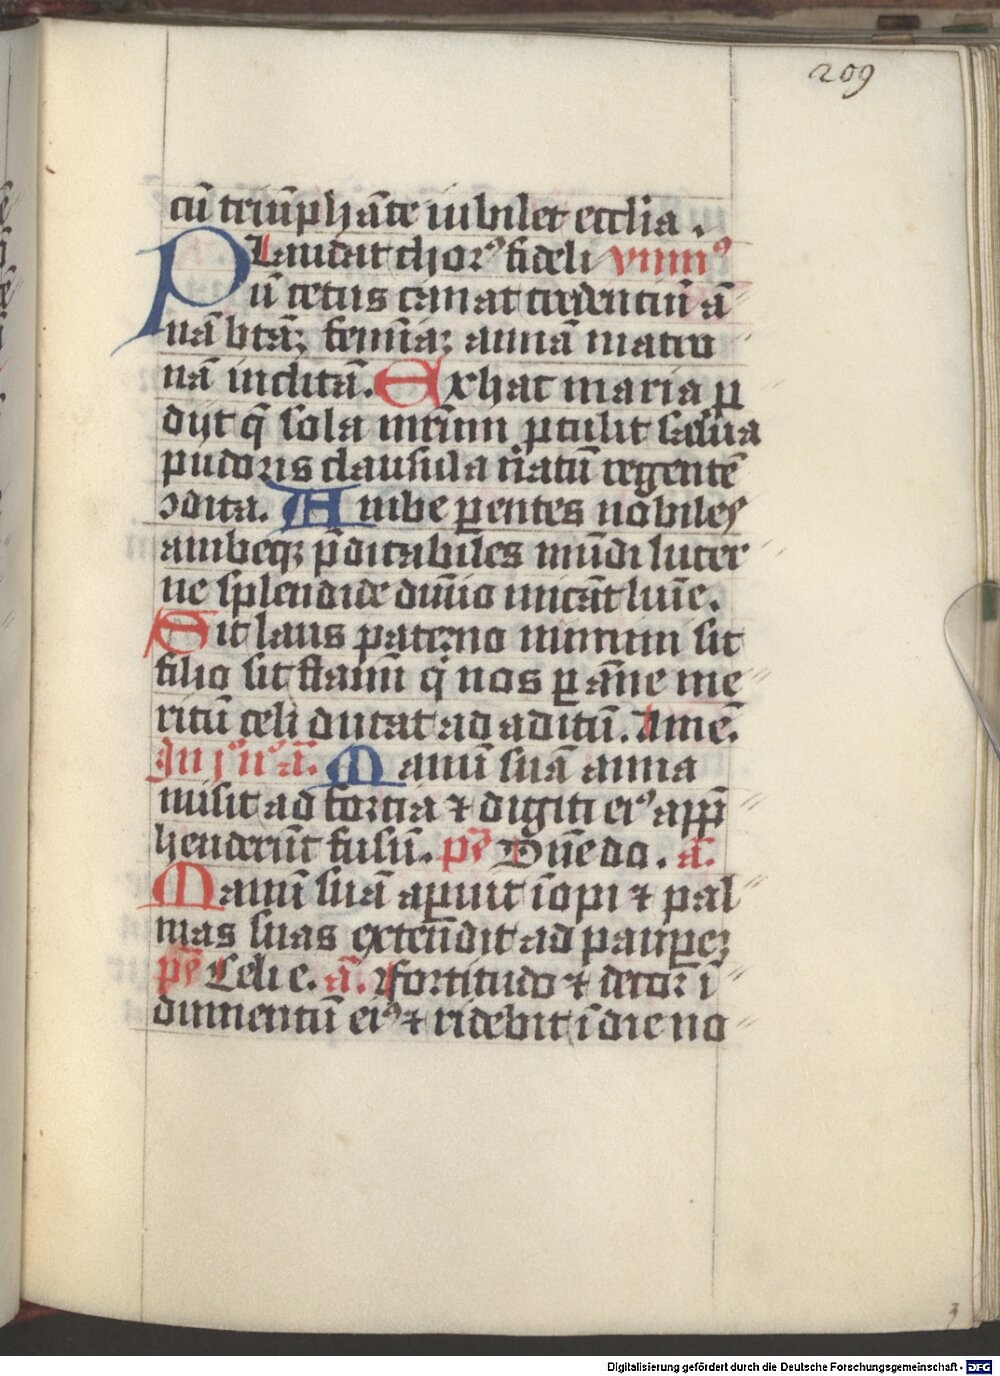 209
cū triūphāte iubilet ecclia .
Plaudat chorꝰ fideli ymnꝰ
ū cetus canat credentiū ā
nā btāꝫ femīaꝫ annā matro
nā inclitā. Ex hac maria ꝓ
dijt q̄ sola mr̄im ꝓtulit salua
pudoris clausula natū regentē
ɔdita. Ambe ꝑentes nobiles
ambeqꝫ p̄dicabiles mūdi lucer
ne splendide diuīo micāt luīe.
Sit laus paterno numini sit
filio sit flami q̇ nos ꝑ āne me
ritū celi ducat ad aditū. Amē.
In j nꝰ ā. Manū suā anna
misit ad fortia ⁊ digiti eiꝰ app̄
henderūt fusū. pꝭ Dn̄e do. ā.
Manū suā aꝑuit īopi ⁊ pal
mas suas extendit ad pauꝑeꝫ
pꝭ Celi e. ā. Fortitudo ⁊ decor ī
dumentū eiꝰ ⁊ ridebit ī die no
Digitalisierung gefördert durch die Deutsche Forschungsgemeinschaft - DFG